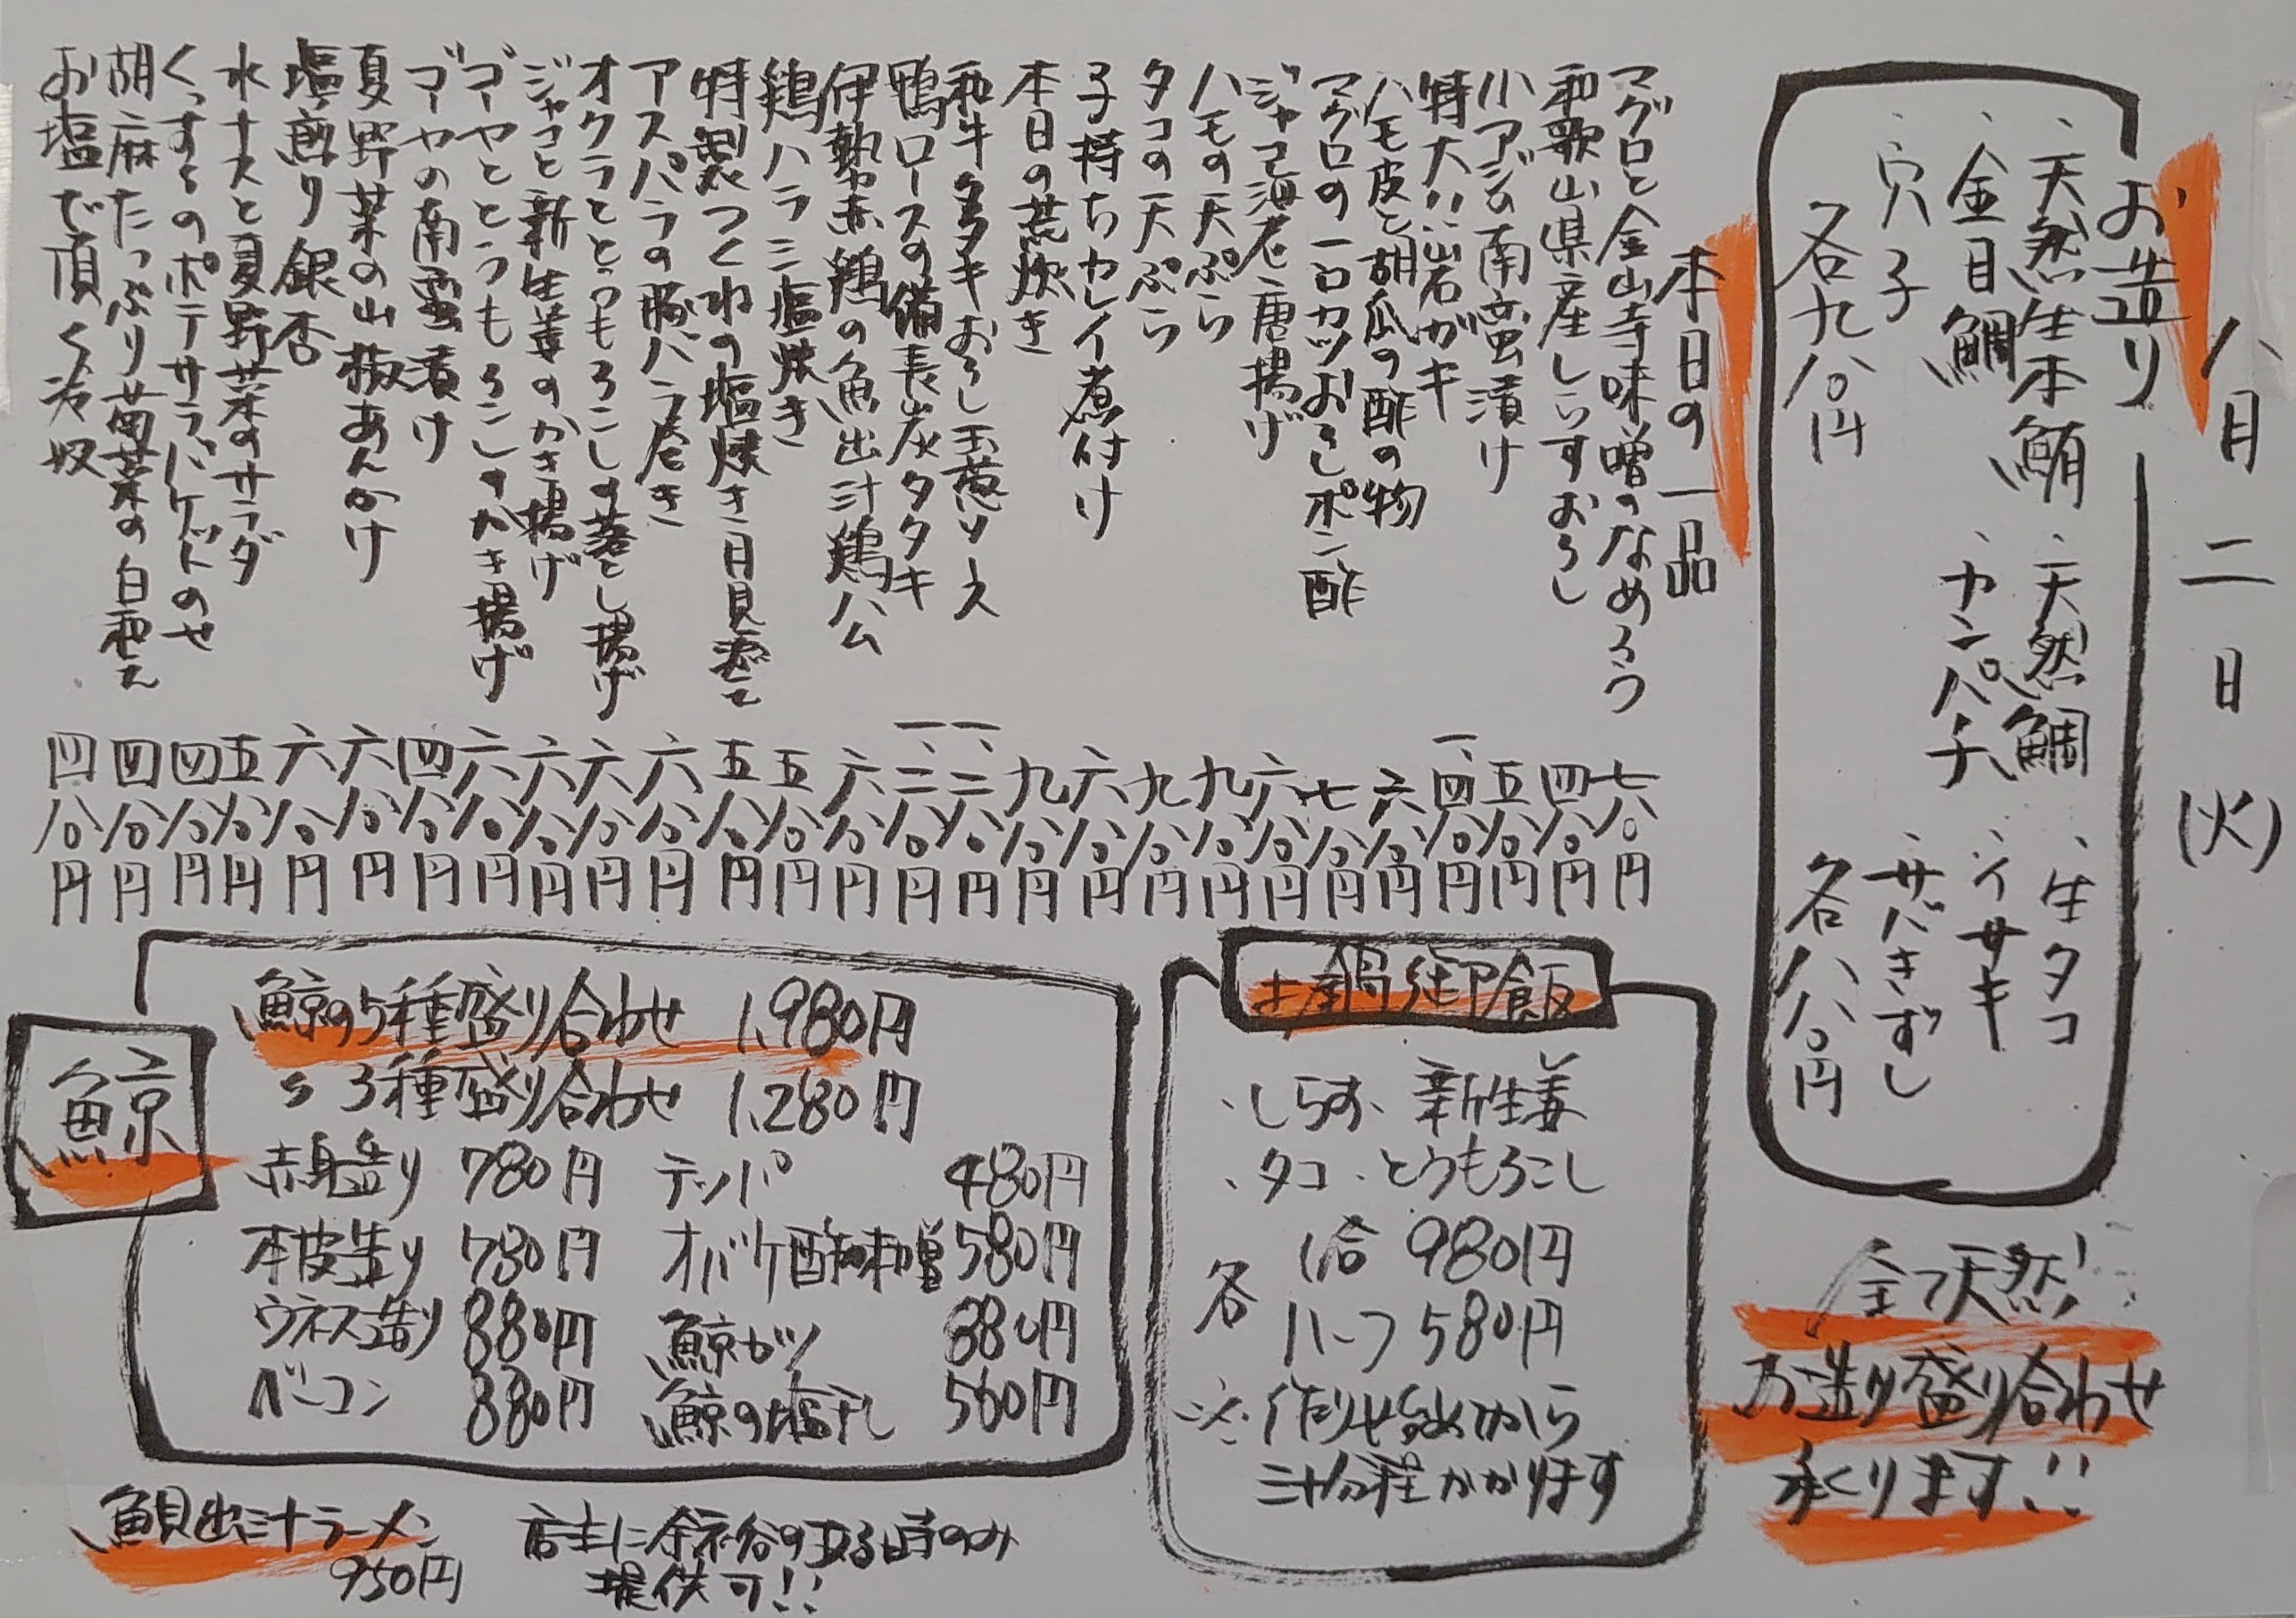 八月二日(火)
お造り
、天然生本鮪 、天然鯛 、生タコ
、金目鯛 、カンパチ 、イサキ
、穴子 、サバきずし
各九八〇円 各八八〇円
全て天然!
お造り盛り合わせ
承ります!!
本日の一品
マグロと金山寺味噌のなめろう 七八〇円
和歌山県産しらすおろし 四八〇円
小アジの南蛮漬け 五八〇円
特大!!岩ガキ 一、四八〇円
ハモ皮と胡瓜の酢の物 六八〇円
マグロの一口カツおろしポン酢 七八〇円
ジャコ海老唐揚げ 六八〇円
ハモの天ぷら 九八〇円
タコの天ぷら 九八〇円
子持ちカレイ煮付け 六八〇円
本日の荒炊き 九八〇円
和牛タタキおろし玉葱ソース 一、二八〇円
鴨ロースの備長炭タタキ 一、二八〇円
伊勢赤鶏の魚出汁鶏ハム 六八〇円
鶏ハラミ塩焼き 五八〇円
特製つくねの塩焼き月見添て 五八〇円
アスパラの豚バラ巻き 六八〇円
オクラととうもろこしの落とし揚げ 六八〇円
ジャコと新生姜のかき揚げ 六八〇円
ゴーヤととうもろこしのかき揚げ 六八〇円
ゴーヤの南蛮漬け 四八〇円
夏野菜の山椒あんかけ 六八〇円
塩煎り銀杏 六八〇円
水ナスと夏野菜のサラダ 五八〇円
くっするのポテサラバケットのせ 四八〇円
胡麻たっぷり菊菜の白和え 四八〇円
お塩で頂く冷奴 四八〇円
土鍋御飯
、しらす、新生姜
、タコ、とうもろこし
各 1合 980円
ハーフ 580円
※作りせ始めから
三十分程かかります
鯨
鯨の5種盛り合わせ 1,980円
〃 3種盛り合わせ 1,280円
赤身造り 780円 テッパ 480円
本皮造り 780円 オバケ酢味噌 580円
ウネス造り 880円 鯨カツ 880円
ベーコン 880円 鯨の塩干し 560円
鯛出汁ラーメン
950円
店主に余裕の有る時のみ
提供可!!